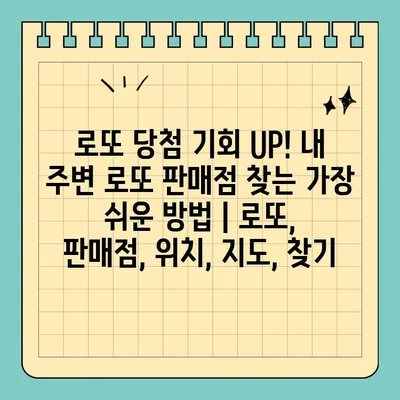 로또 당첨 기회 UP! 내
주변 로또 판매점 찾는 가장
쉬운 방법 | 로또,
판매점, 위치, 지도, 찾기